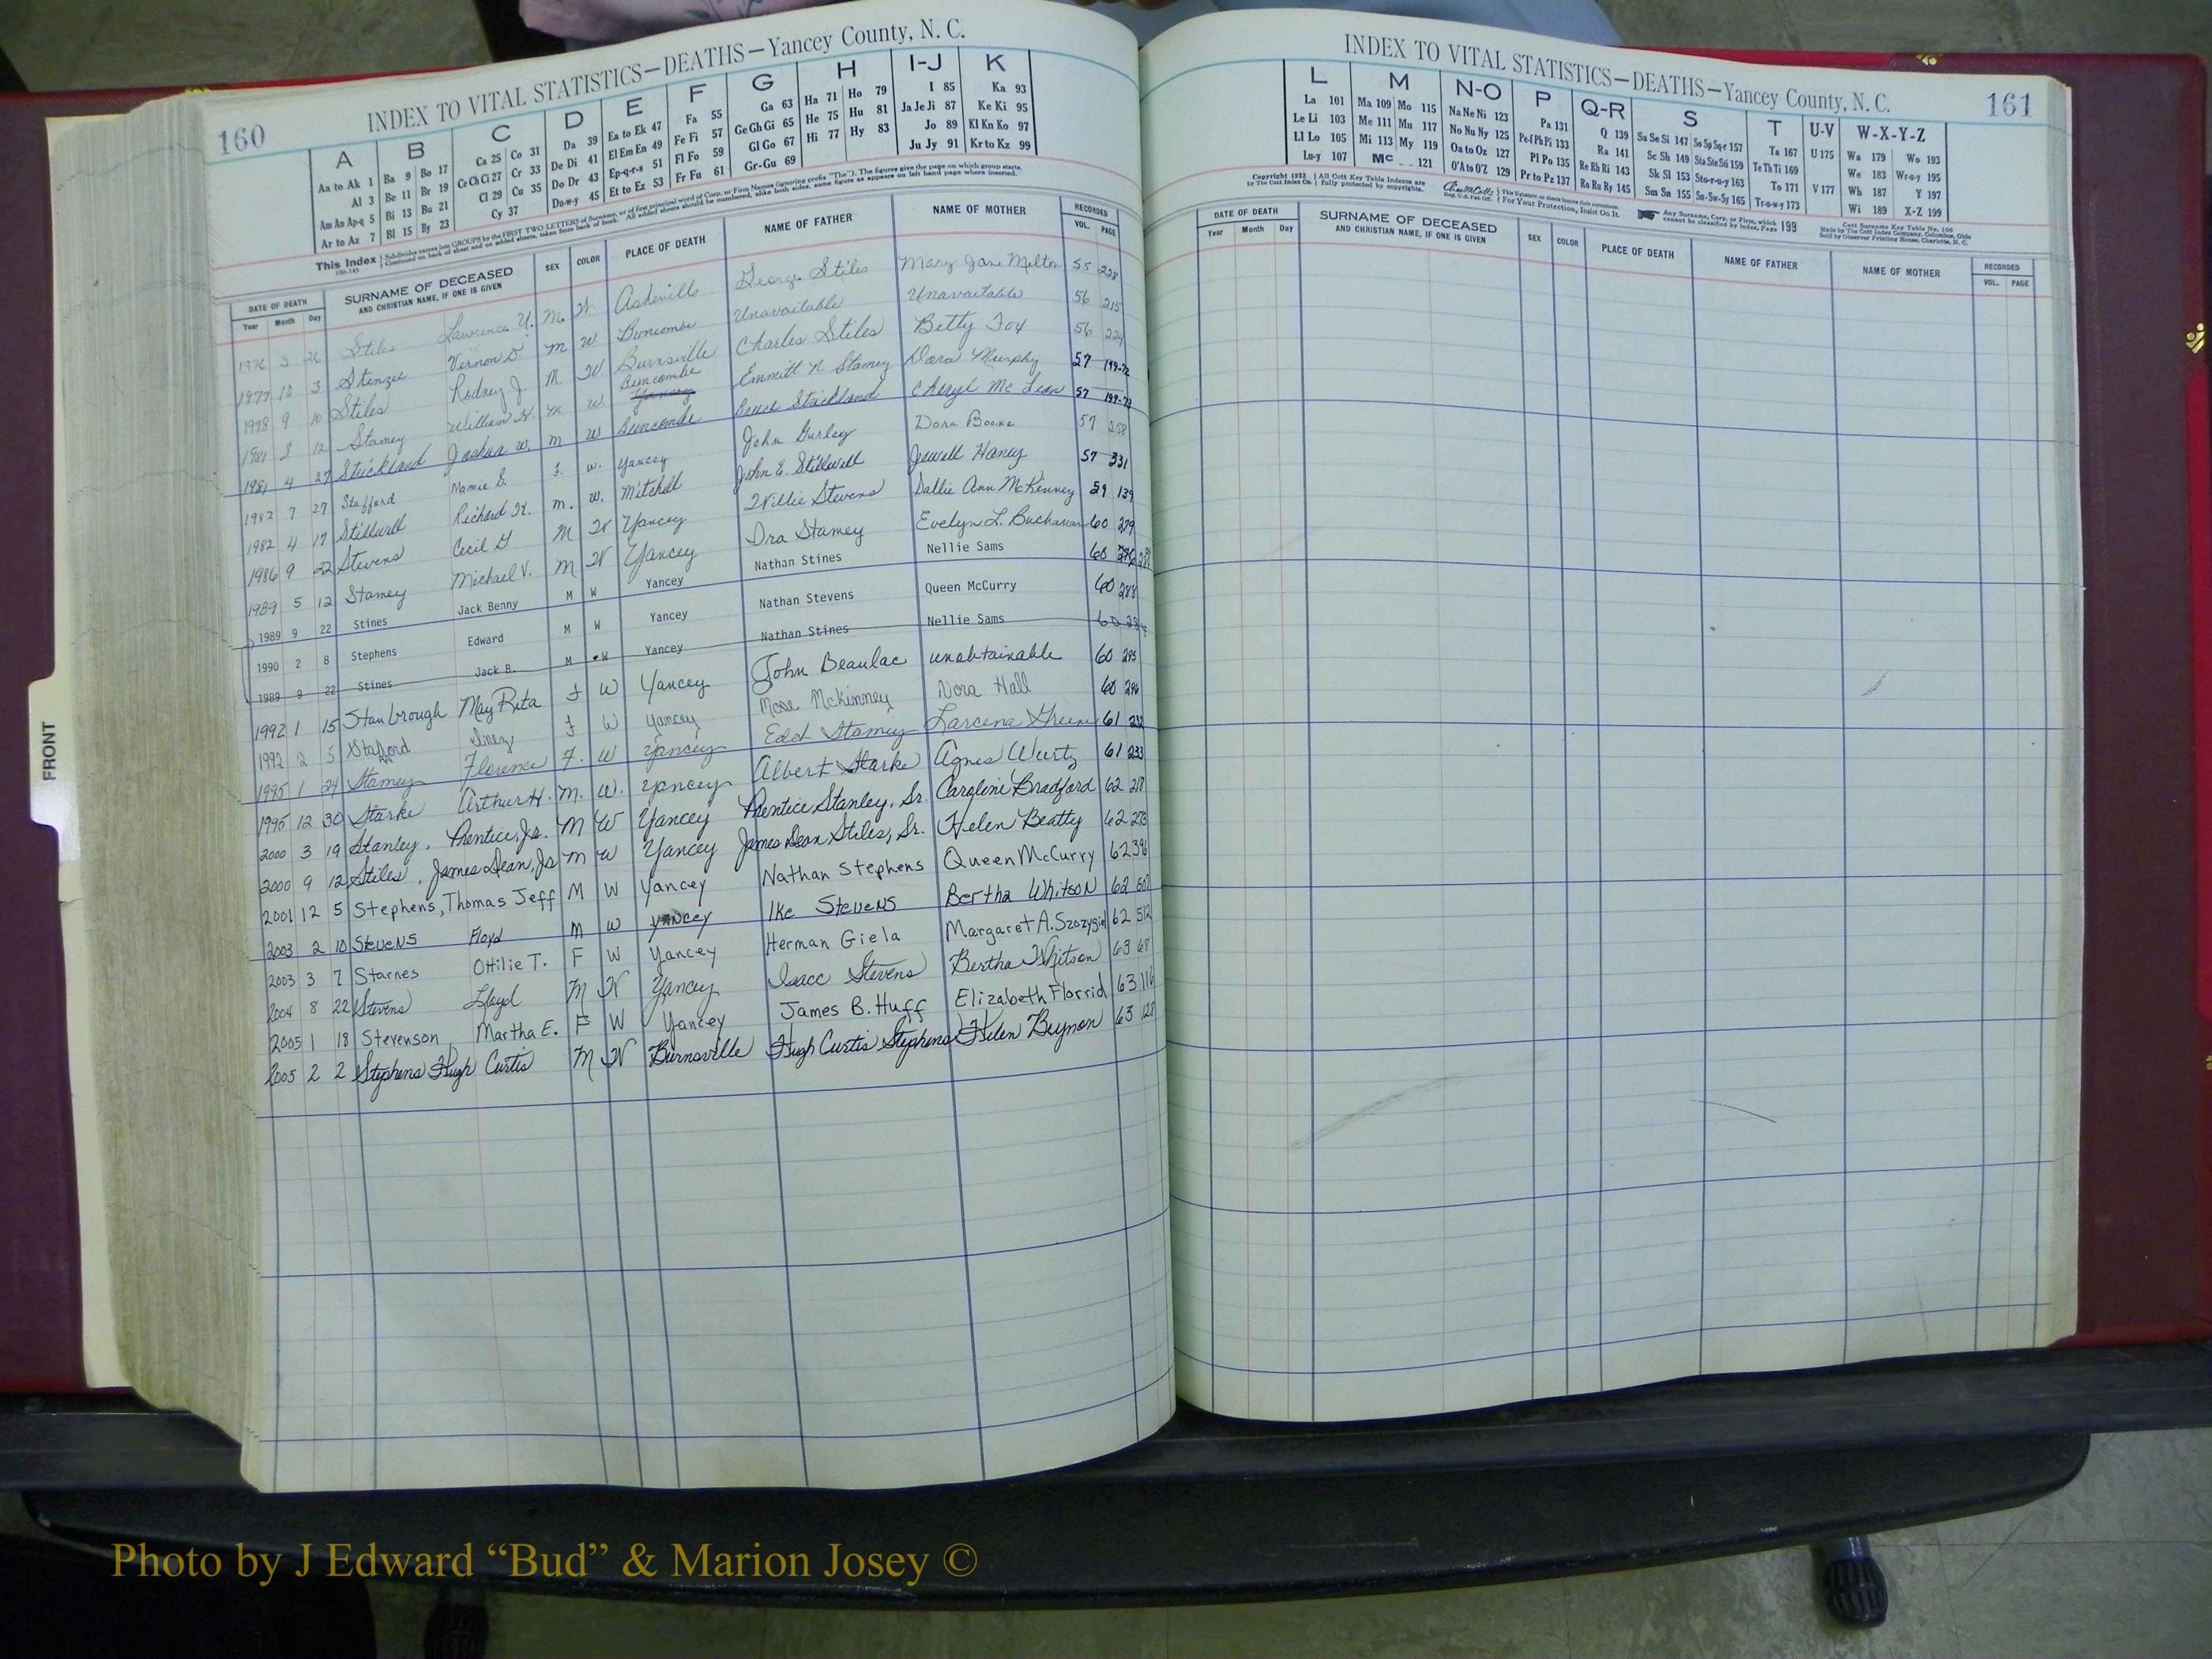 160
INDEX TO VITAL STATISTICS—DEATHS—Yancey County, N. C.
A B C D E F G H I-J K
Aa to Ak 1 Ba 9 Bo 17 Ca 25 Co 31 Da 39 Ea to Ek 47 Fa 55 Ga 63 Ha 71 Ho 79 I 85 Ka 93
Al 3 Be 11 Br 19 Ce Ch Ci 27 Cr 33 De Di 41 El Em En 49 Fe Fi 57 Ge Gh Gi 65 He 75 Hu 81 Ja Je Ji 87 Ke Ki 95
Am An Ap-q 5 Bi 13 Bu 21 Cl 29 Cu 35 Do Dr 43 Ep-q-r-s 51 Fl Fo 59 Gl Go 67 Hi 77 Hy 83 Jo 89 Kl Kn Ko 97
Ar to Az 7 Bl 15 By 23 Cy 37 Du-w-y 45 Et to Ez 53 Fr Fu 61 Gr-Gu 69 Ju Jy 91 Kr to Kz 99
This Index Subdivides names into GROUPS by the FIRST TWO LETTERS of Surname, or of first principal word of Corp. or Firm Names (ignoring prefix "The"). The figures give the page on which group starts.
Continued on back of sheet and on added sheets, taken from back of book. All added sheets should be numbered, alike both sides, same figure as appears on left hand page where inserted.
DATE OF DEATH SURNAME OF DECEASED SEX COLOR PLACE OF DEATH NAME OF FATHER NAME OF MOTHER RECORDED
Year Month Day AND CHRISTIAN NAME, IF ONE IS GIVEN VOL. PAGE
1976 3 26 Stiles Lawrence Y. M W Asheville George Stiles Mary Jane Melton 55 228
1977 10 3 Stenzee Vernon D. M W Buncombe Unavailable Unavailable 56 215
1978 9 10 Stiles Rodney J. M W Burnsville Charles Stiles Betty Fox 56 224
1981 3 12 Stamey William H. M W Buncombe Yancey Emmitt N Stamey Dora Murphy 57 199-72
1981 4 27 Strickland Joshua W. M W Buncombe Bruce Strickland Cheryl McLean 57 199-73
1982 7 27 Stafford Mamie G. F. W. Yancey John Gurley Dora Boone 57 258
1982 4 17 Stillwell Richard H. M. W. Mitchell John E. Stillwell Jewell Haney 57 331
1986 9 22 Stevens Cecil G. M W Yancey Willie Stevens Dallie Ann McKinney 59 139
1989 5 12 Stamey Michael V. M W Yancey Ora Stamey Evelyn L. Buchanan 60 279
1989 9 22 Stines Jack Benny M W Yancey Nathan Stines Nellie Sams 60
1990 2 8 Stephens Edward M W Yancey Nathan Stevens Queen McCurry 60 288
1989 9 22 Stines Jack B. M W Yancey Nathan Stines Nellie Sams 60
1992 1 15 Stanbrough May Rita F W Yancey John Beaulac unobtainable 60 295
1992 2 5 Stafford Inez F W Yancey Mose McKinney Nora Hall 60 296
1995 1 24 Stamey Florence F. W Yancey Edd Stamey Larcena Green 61 232
1995 12 30 Starke Arthur H. M. W. Yancey Albert Starke Agnes Wurtz 61 233
2000 3 19 Stanley, Prentice, Jr. M W Yancey Prentice Stanley, Sr. Caroline Bradford 62 218
2000 9 12 Stiles, James Dean, Jr M W Yancey James Dean Stiles, Sr. Helen Beatty 62 273
2001 12 5 Stephens, Thomas Jeff M W Yancey Nathan Stephens Queen McCurry 62 396
2003 2 10 Stevens Floyd M W Yancey Ike Stevens Bertha Whitson 62 507
2003 3 7 Starnes Ottilie T. F W Yancey Herman Giela Margaret A. Szozygiel 62 512
2004 8 22 Stevens Lloyd M W Yancey Isacc Stevens Bertha Whitson 63 68
2005 1 18 Stevenson, Martha E. F W Yancey James B. Huff Elizabeth Florrid 63 116
2005 2 2 Stephens Hugh Curtis M W Burnsville Hugh Curtis Stephens Helen Beynon 63 128
FRONT
INDEX TO VITAL STATISTICS—DEATHS—Yancey County, N. C.
161
L M N-O P Q-R S T U-V W-X-Y-Z
La 101 Ma 109 Mo 115 Na Ne Ni 123 Pa 131 Q 139 Sa Se Si 147 So Sp Sq-r 157 Ta 167 U 175 Wa 179 Wo 193
Le Li 103 Me 111 Mu 117 No Nu Ny 125 Pe-f Ph Pi 133 Ra 141 Sc Sh 149 Sta Ste Sti 159 Te Th Ti 169 We 183 Wr-u-y 195
Ll Lo 105 Mi 113 My 119 Oa to Oz 127 Pl Po 135 Re Rh Ri 143 Sk Sl 153 Sto-r-u-y 163 To 171 V 177 Wh 187 Y 197
Lu-y 107 Mc 121 O'A to O'Z 129 Pr to Pz 137 Ro Ru Ry 145 Sm Sn 155 Su-Sw-Sy 165 Tr-u-w-y 173 Wi 189 X-Z 199
Copyright 1932 by The Cott Index Co. All Cott Key Table Indexes are fully protected by copyrights. For Your Protection, Insist On It. Any Surname, Corp. or Firm, which cannot be classified by Index, Page 199
Cott Surname Key Table No. 100
Made by The Cott Index Company, Columbus, Ohio
Sold by Observer Printing House, Charlotte, N. C.
DATE OF DEATH SURNAME OF DECEASED SEX COLOR PLACE OF DEATH NAME OF FATHER NAME OF MOTHER RECORDED
Year Month Day AND CHRISTIAN NAME, IF ONE IS GIVEN VOL. PAGE
Photo by J Edward “Bud” & Marion Josey ©